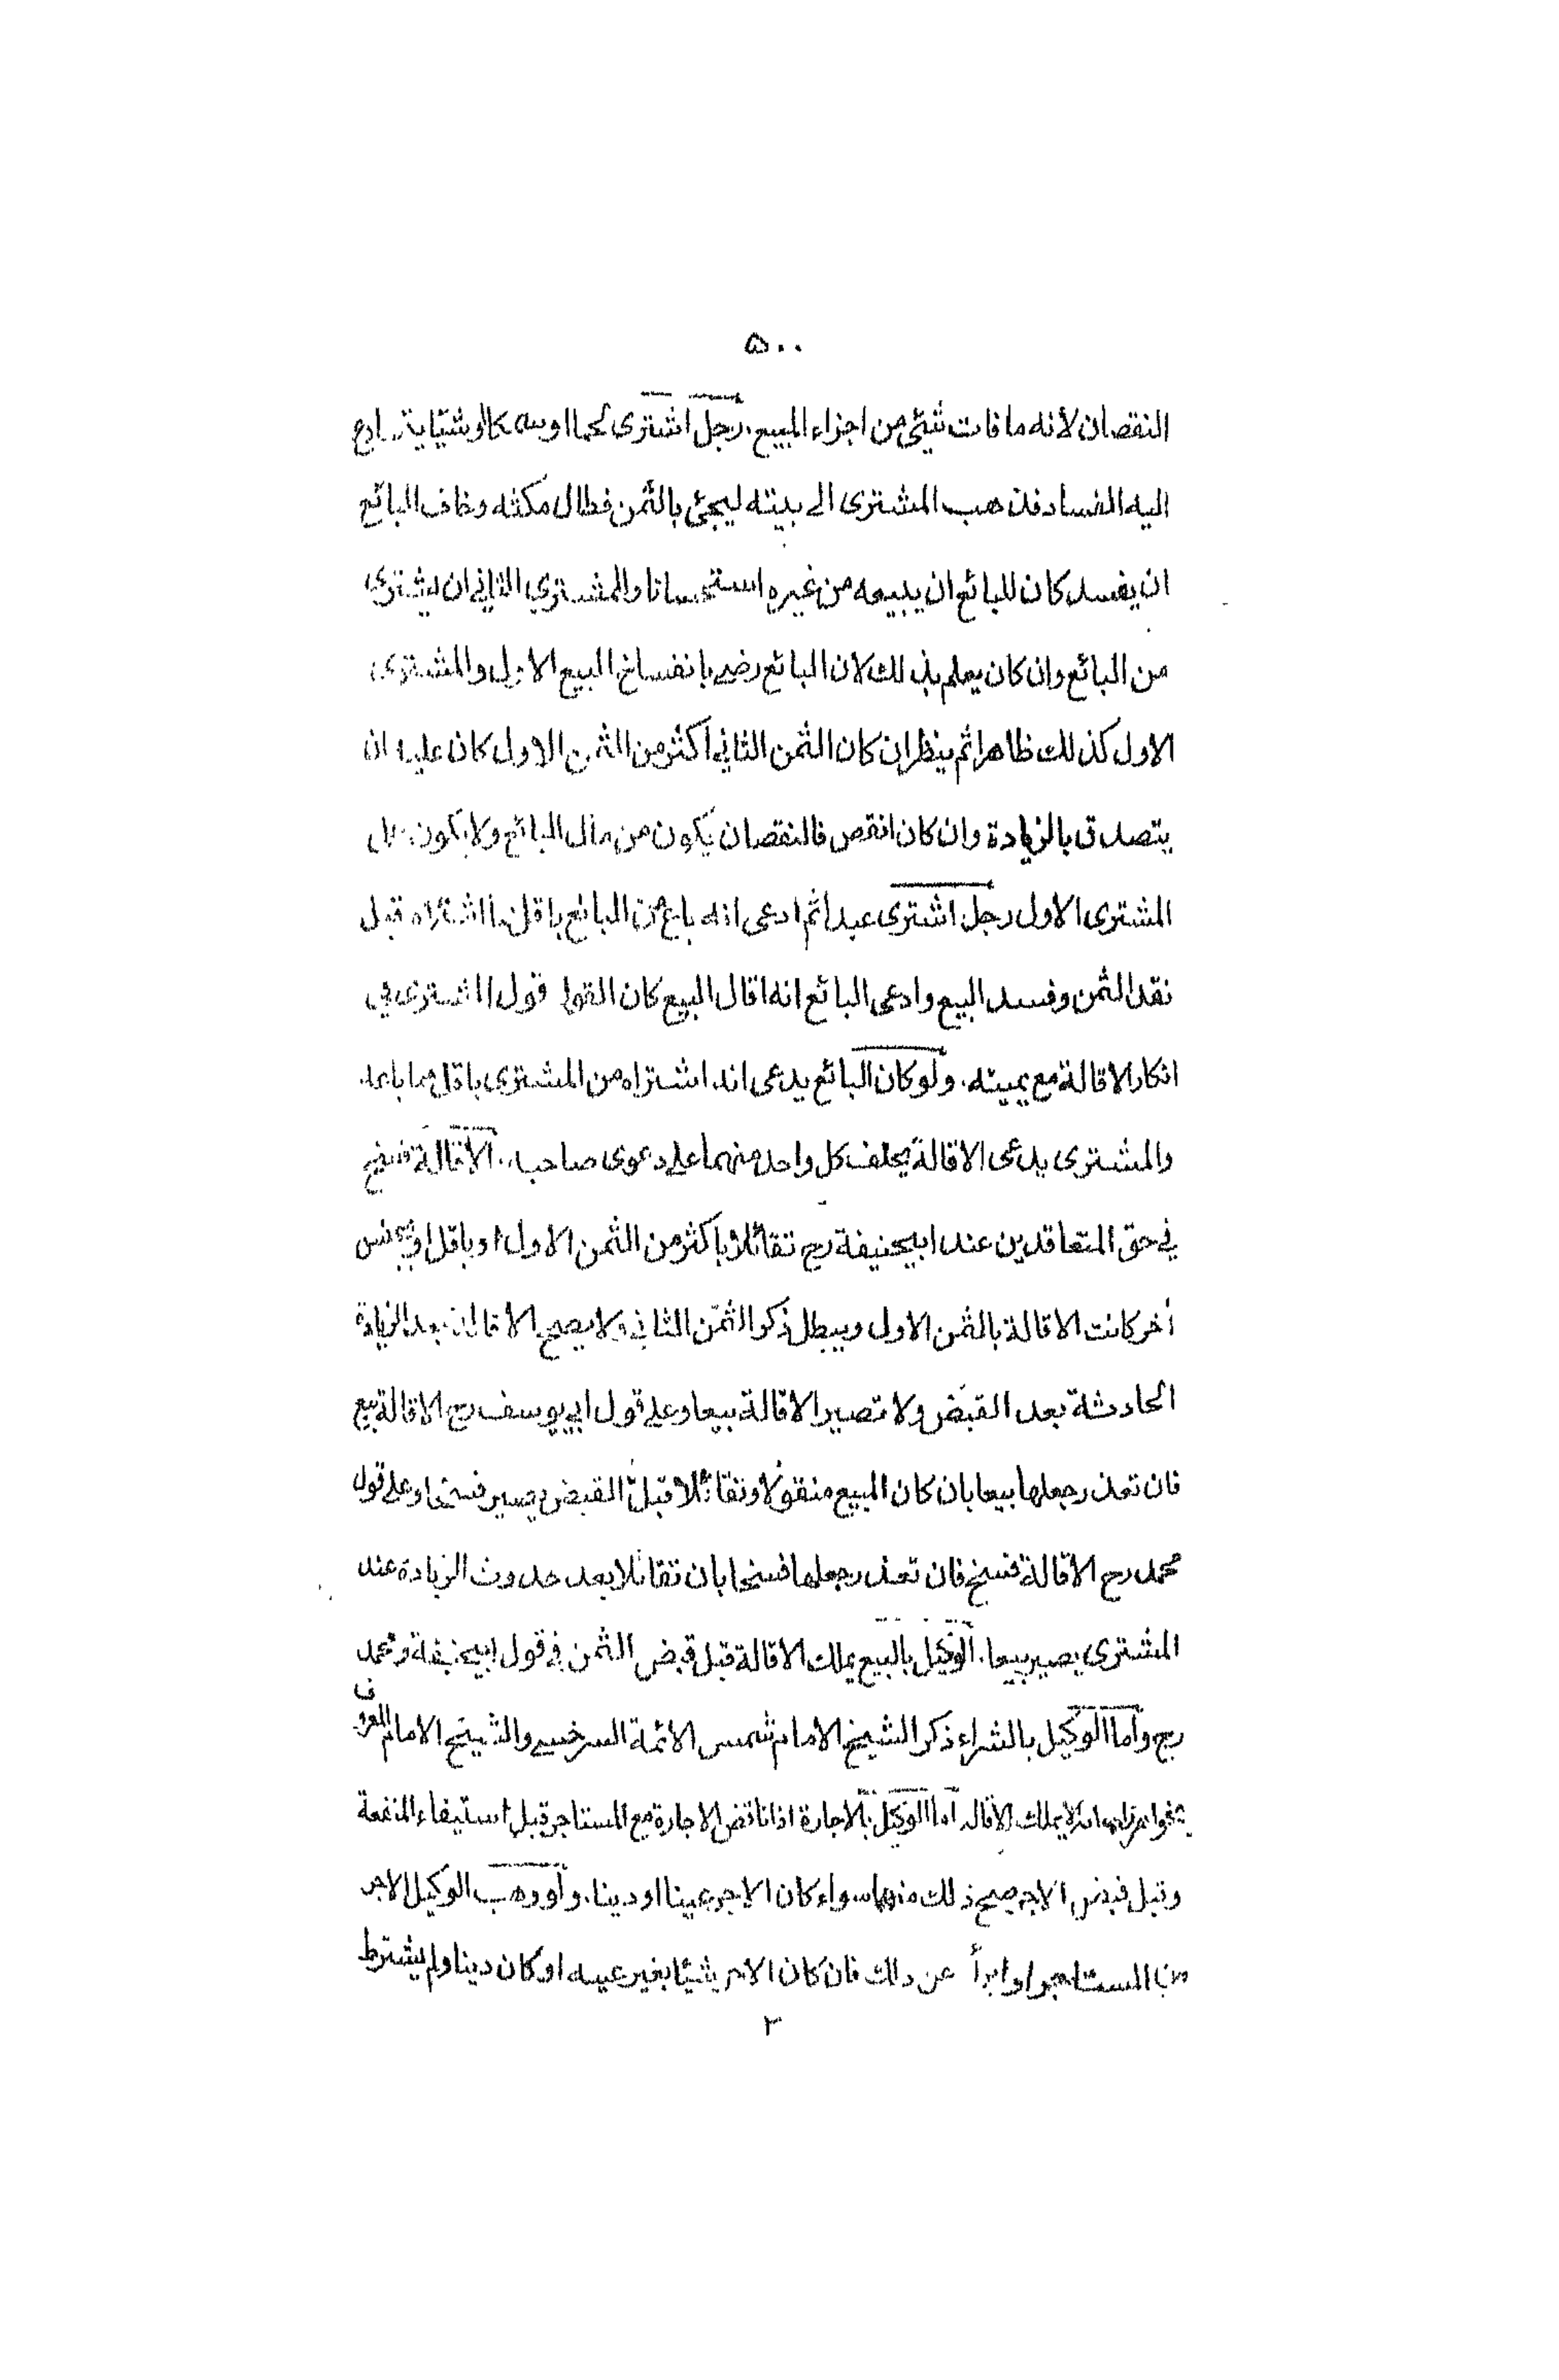 ۵۰۰
النقصان لأنه ما فات شيئ من اجزاء المبيع. رجل اشترى لحما او سمكا او شيئا يتسارع
اليه الفساد فذهب المشترى الى بيته ليجئ بالثمن فطال مكثه وخاف البائع
ان يفسد كان للبائع ان يبيعه من غيره استحسانا وللمشتري الثاني ان يشترى
من البائع وان كان يعلم بذلك لان البائع رضي بانفساخ البيع الاول والمشترى
الاول كذلك ظاهرا ثم ينظر ان كان الثمن الثاني اكثر من الثمن الاول كان عليه ان
يتصدق بالزيادة وان كان انقص فالنقصان يكون من مال البائع ولا يكون على
المشترى الاول رجل اشترى عبدا ثم ادعى انه باع من البائع باقل مما اشتراه قبل
نقد الثمن وفسد البيع وادعى البائع انه اقال البيع كان القول قول المشترى في
انكار الاقالة مع يمينه. ولو كان البائع يدعى انه اشتراه من المشترى باقل مما باعه
والمشترى يدعى الاقالة يحلف كل واحد منهما على دعوى صاحبه. الاقالة فسخ
في حق المتعاقدين عند ابيحنيفة رح تقائلا باكثر من الثمن الاول او باقل او بجنس
أخر كانت الاقالة بالثمن الاول ويبطل ذكر الثمن الثاني ولا يصح الاقالة بعد الزيادة
الحادثة بعد القبض ولا تصير الاقالة بيعا وعلى قول ابي يوسف رح الاقالة بيع
فان تعذر جعلها بيعا بان كان المبيع منقولا وتقائلا قبل القبض يصير فسخا وعلى قول
محمد رح الاقالة فسخ فان تعذر جعلها فسخا بان تقائلا بعد حدوث الزيادة عند
المشترى يصير بيعا. الوكيل بالبيع يملك الاقالة قبل قبض الثمن في قول ابيحنيفة ومحمد
رح واما الوكيل بالشراء ذكر الشيخ الامام شمس الائمة السرخسي والشيخ الامام المعروف
بخواهرزاده انه لا يملك الاقالة اما الوكيل بالاجارة اذا ناقض الاجارة مع المستاجر قبل استيفاء المنفعة
وقبل قبض الاجر صح ذلك منهما سواء كان الاجر عينا او دينا. ولو وهب الوكيل الاجر
من المستاجر او ابرأ عن ذلك فان كان الاجر شيئا بغير عينه او كان دينا ولم يشترط
٢